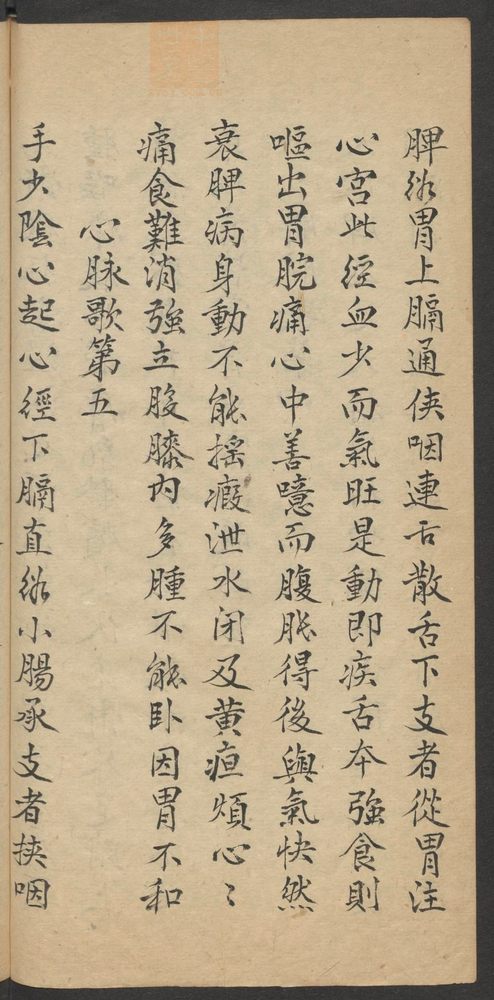 脾絡胃上膈通侠咽連舌散舌下支者從胃注
心宮此經血少而氣旺是動即疾舌本強食則
嘔出胃脘痛心中善噫而腹脹得後與氣快然
衰脾病身動不能揺瘕泄水闭及黄疸煩心〻
痛食難消強立股膝内多腫不能卧因胃不和
心脉歌第五
手少陰心起心經下膈直絡小腸承支者挟咽